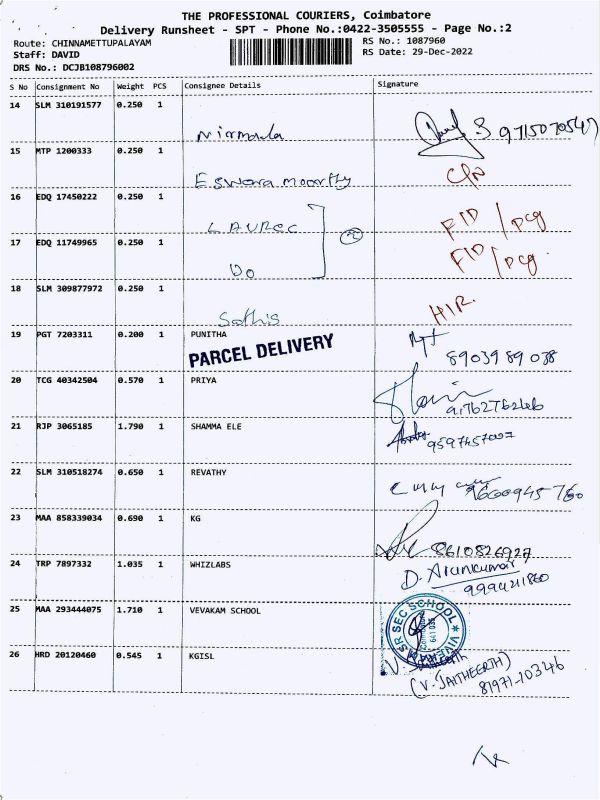 THE PROFESSIONAL COURIERS, Coimbatore
Delivery Runsheet - SPT - Phone No.:0422-3505555 - Page No.:2
Route: CHINNAMETTUPALAYAM RS No.: 1087960
Staff: DAVID RS Date: 29-Dec-2022
DRS No.: DCJB108796002
S No Consignment No Weight PCS Consignee Details Signature
14 SLM 310191577 0.250 1 Nirmala 9715070547
15 MTP 1200333 0.250 1 Eswara moorthy C/N
16 EDQ 17450222 0.250 1 LAUREC FID / pcg
17 EDQ 11749965 0.250 1 Do ② FID / pcg
18 SLM 309877972 0.250 1 Sathis HIR
19 PGT 7203311 0.200 1 PUNITHA 8903989038
PARCEL DELIVERY
20 TCG 40342504 0.570 1 PRIYA
21 RJP 3065185 1.790 1 SHAMMA ELE
22 SLM 310518274 0.650 1 REVATHY 9600945760
23 MAA 858339034 0.690 1 KG 8610826927
24 TRP 7897332 1.035 1 WHIZLABS D. Arunkumar
9994211860
25 MAA 293444075 1.710 1 VEVAKAM SCHOOL SR SEC SCHOOL
26 HRD 20120460 0.545 1 KGISL
(V. JAITHEERTH)
81971-10346